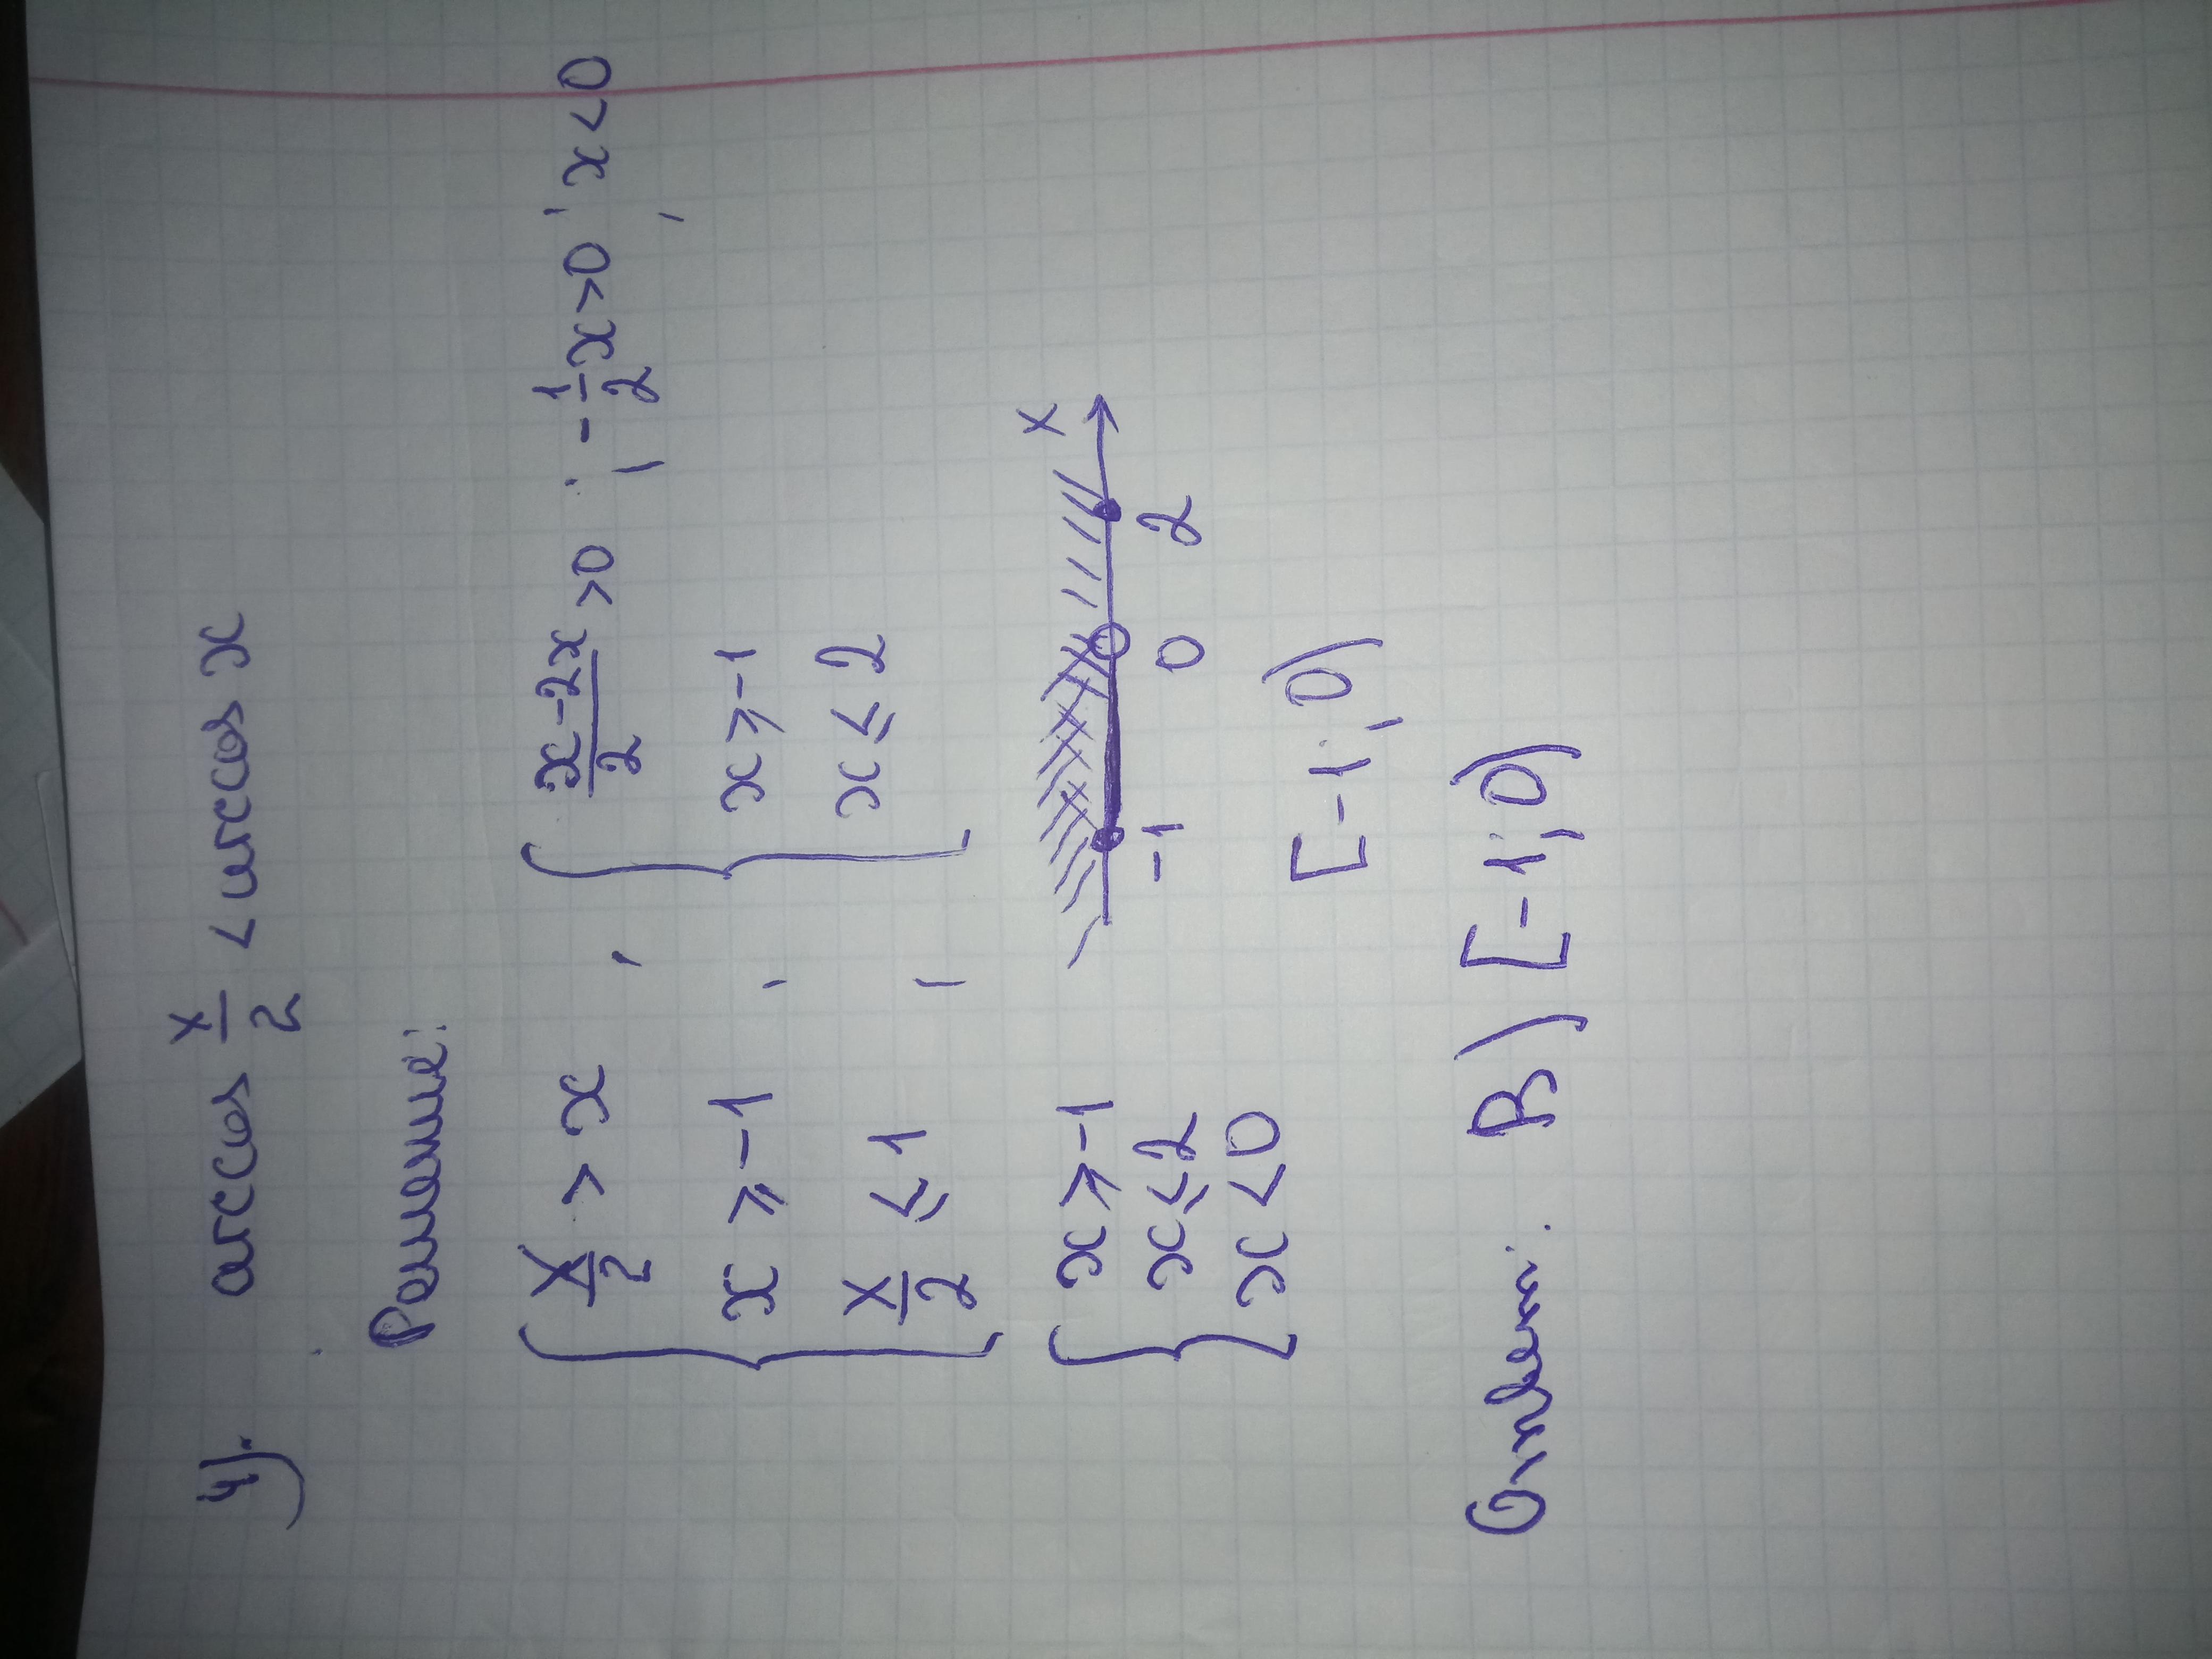 4). arccos x/2 < arccos x
Решение:
{ x/2 > x , { (x-2x)/2 >0 ; -1/2 x>0 ; x<0
x ⩾ -1 , x ⩾ -1
x/2 ≤ 1 , x ≤ 2
{ x ⩾ -1
x ≤ 2
x < 0
-1 0 2 x
[-1; 0)
Ответ: В) [-1; 0)